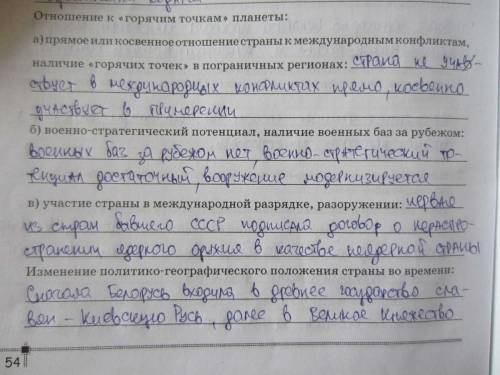 Отношение к «горячим точкам» планеты:
а) прямое или косвенное отношение страны к международным конфликтам,
наличие «горячих точек» в пограничных регионах: страна не участ-
ствует в международных конфликтах прямо, косвенно
участвует в примерении
б) военно-стратегический потенциал, наличие военных баз за рубежом:
военных баз за рубежом нет, военно-стратегический по-
тенциал достаточный, вооружение модернизируется
в) участие страны в международной разрядке, разоружении: первые
из стран бывшего СССР подписала договор о нераспро-
странении ядерного оружия в качестве неядерной страны
Изменение политико-географического положения страны во времени:
Сначала Беларусь входила в древнее государство сла-
вян - Киевскую Русь, далее в Великое Княжество
54